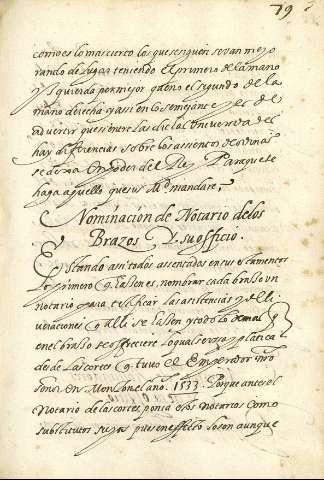 79
como es lo mas cierto los que se siguen se van mejo
rando de lugar teniendo el primero de la mano
yzquierda por mejor que no el segundo de la
mano derecha y assi en los semejantes se de
advertir que siempre las dichas
hay differencias sobre los assientos
se de na en poder del Rey Para que se
haga aquello que su Md mandare,
Nominacion de Notario de los
Brazos Y su officio.
Estando assi todos assentados en sus estamentos
Lo primero q hazen es, nombrar cada brazo un
notario para testificar las assistencias y deli
veraciones q alli se hazen y todo lo demas
en el brazo se offreciere Lo qual se usa y platica
desde Las cortes q tuvo el Emperador nro
señor en Monçon el ano. 1533. Porque antes el
Notario de las cortes ponia esos notarios como
substitutos suyos pues en effecto lo son aunque